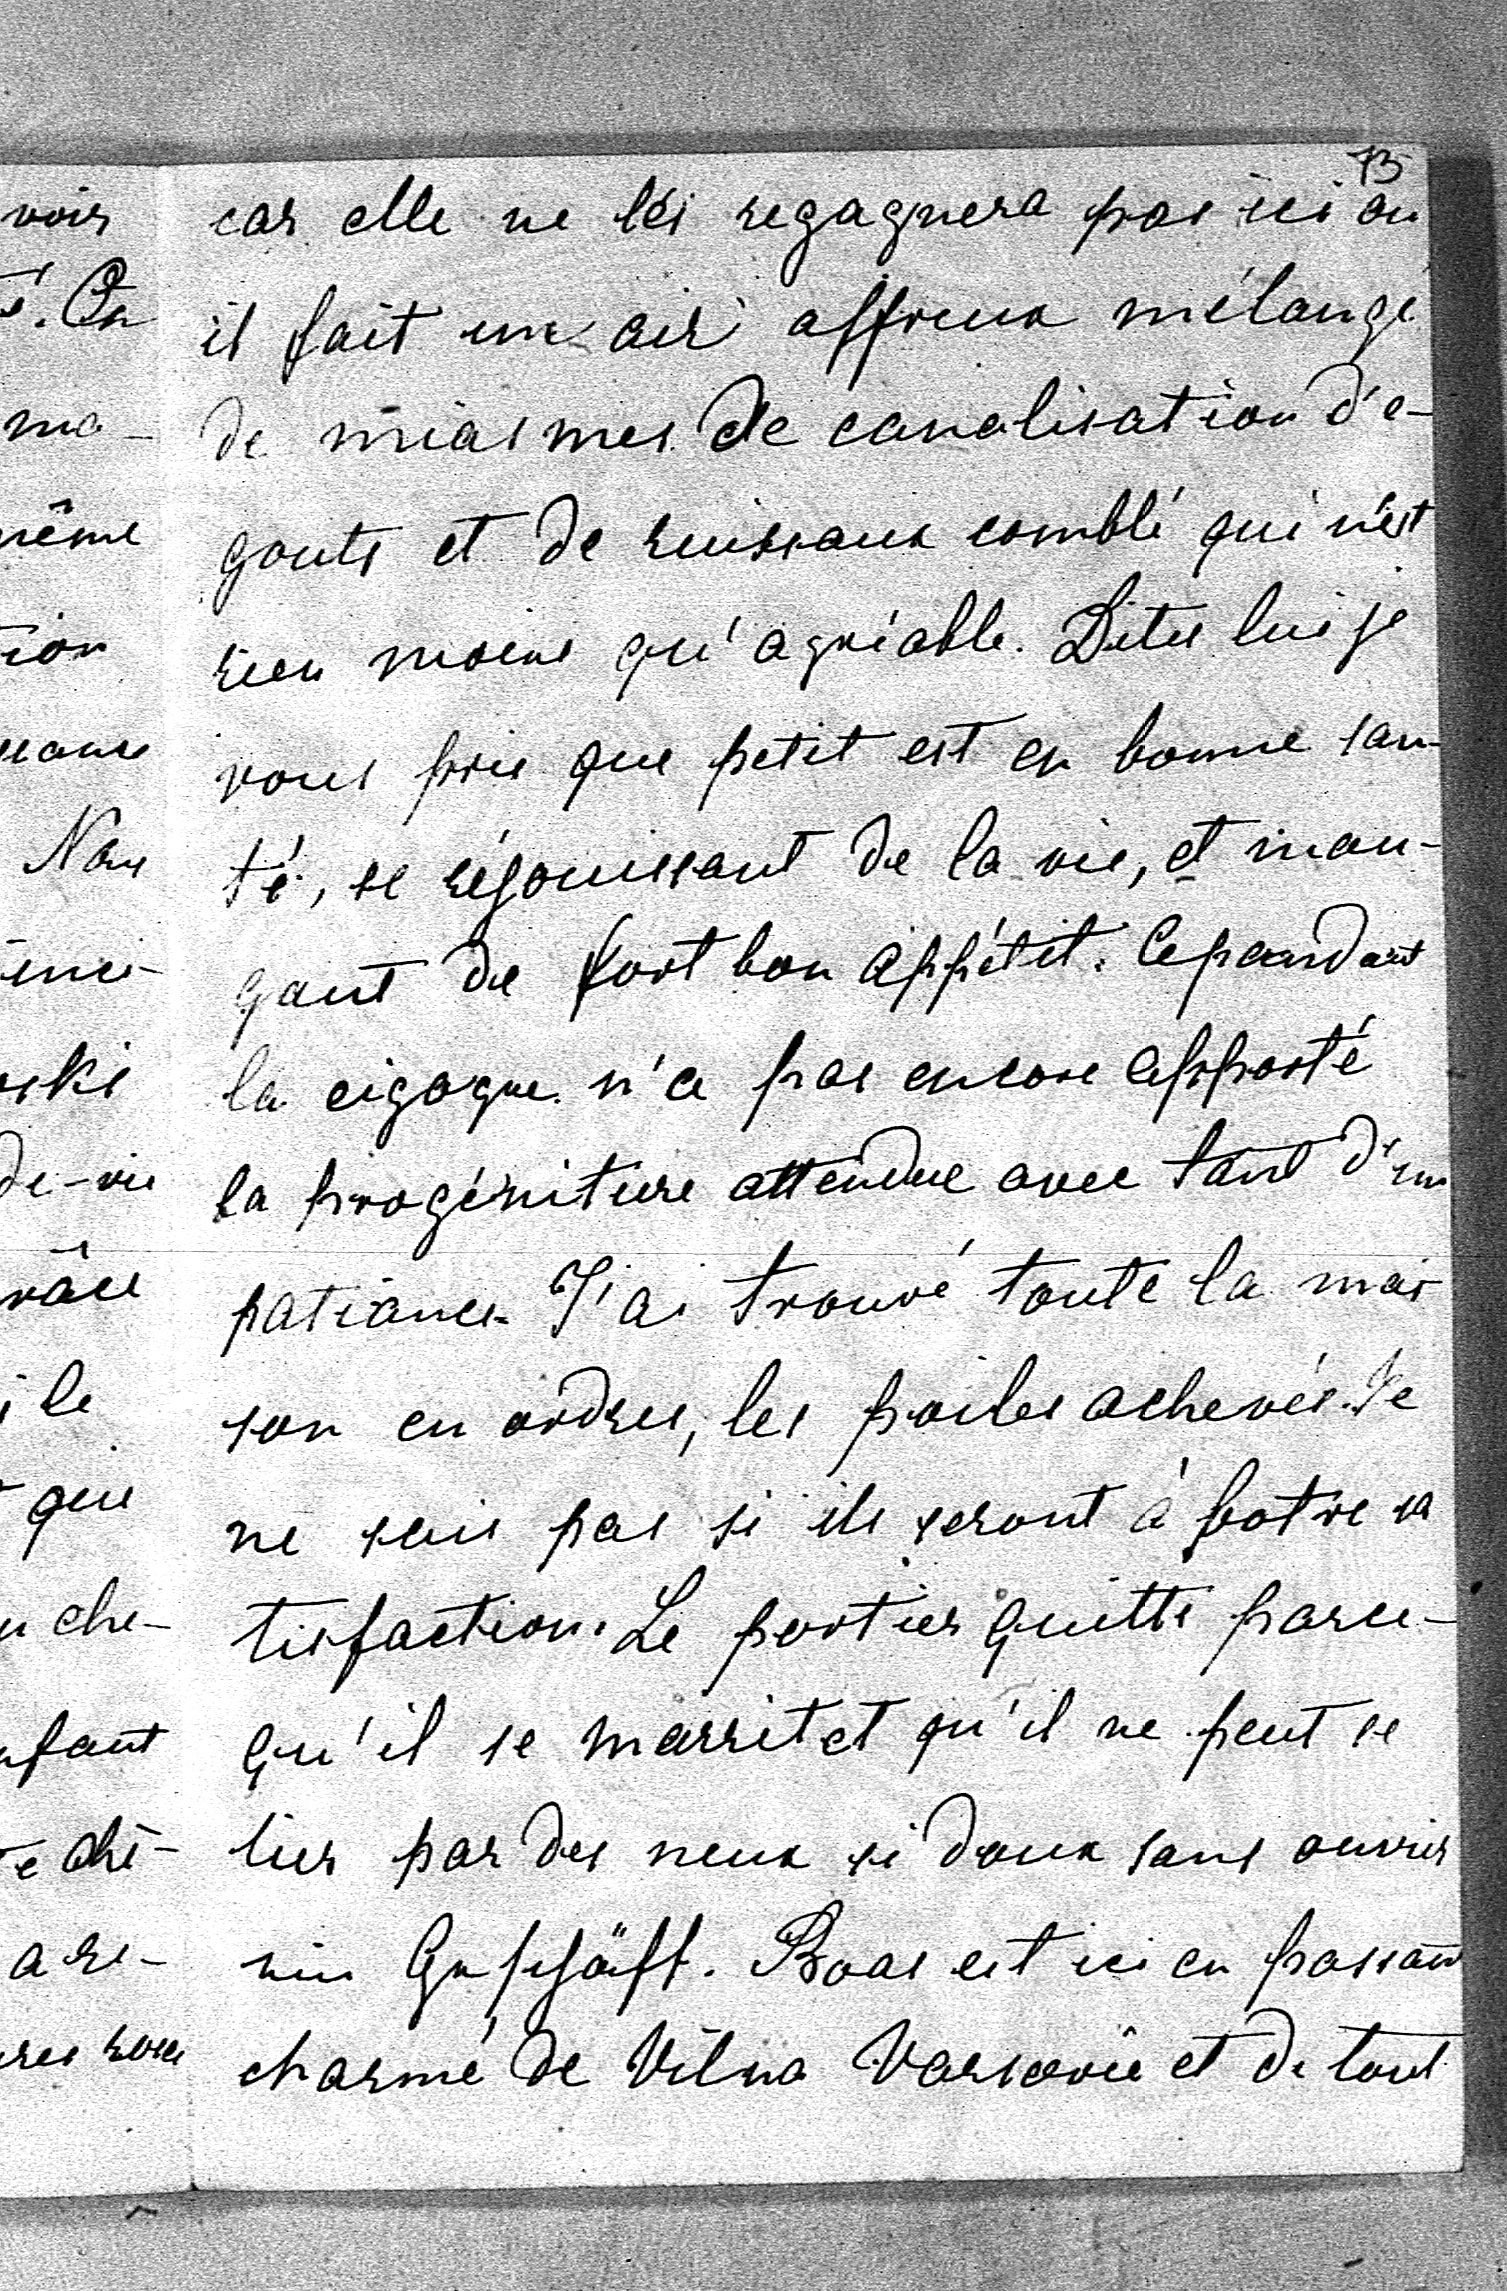 73
car elle ne les regagnera pas ici ou
il fait un air affreux mélangé
de miasmes de canalisation d'e-
gouts et de ruissaux comblé qui n'est
rien moins qu'agréable. Dites lui je
vous prie que petit est en bonne san-
té, se réjouissant de la vie, et man-
geant de fort bon appétit. Cependant
la cigogne n'a pas encore apporté
la progéniture attendue avec tant d'im
patiance. J'ai trouvé toute la mai
son en ordres, les poiles achevés. Je
ne sais pas si ils seront à votre sa
tisfaction. Le portier quitte parce-
qu'il se marrit et qu'il ne peut se
lier par des neux si doux sans ouvrir
ein Geschäft. Boas est ici en passant
charmé de Vilna Varsovie et de tout
voir
té. On
ma-
même
tion
Nous
enci-
oski
de-vie
râce
i le
que
u che-
nfant
e ché-
a re-